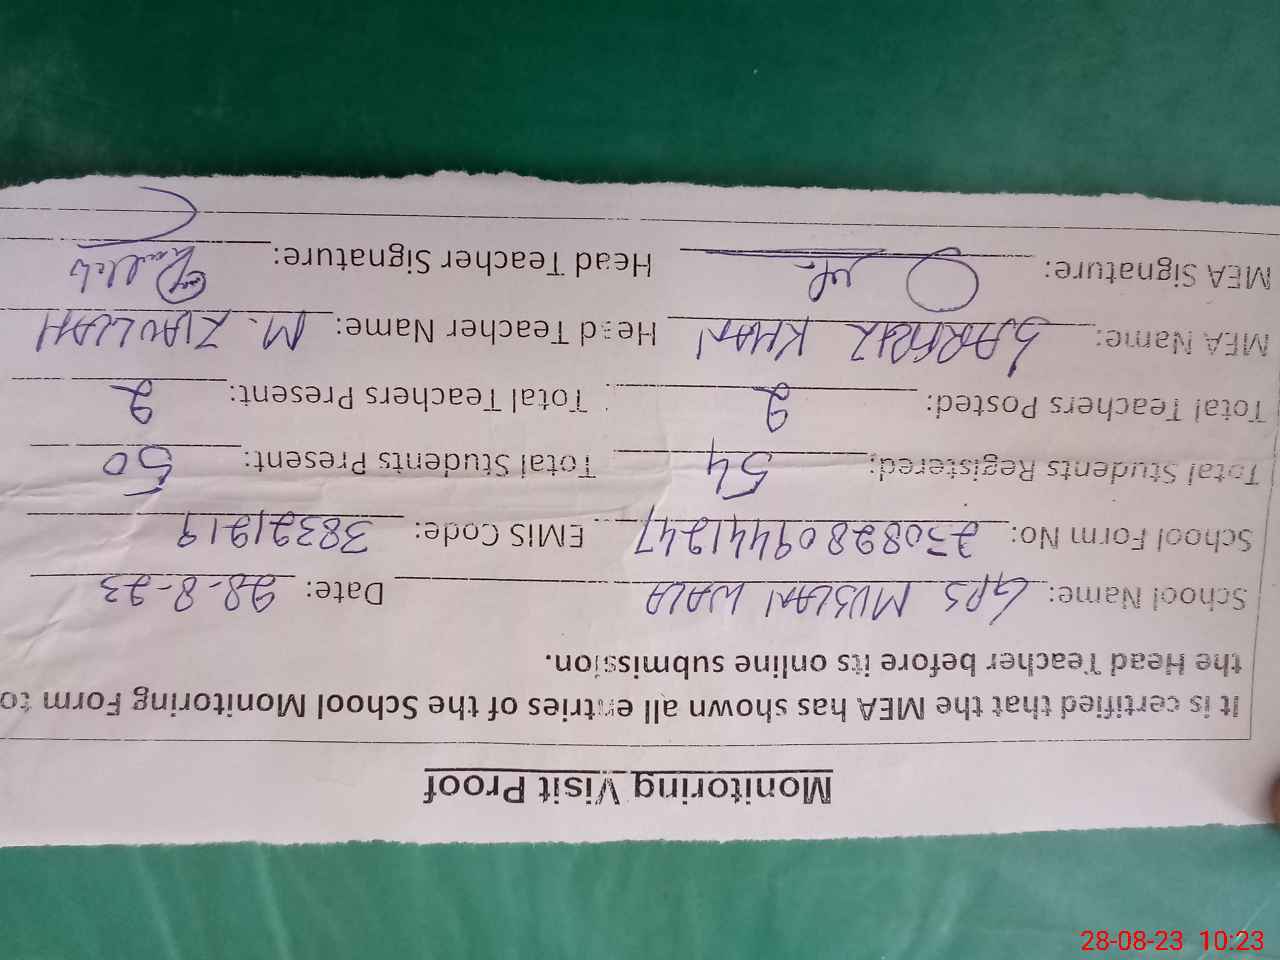 Monitoring Visit Proof
It is certified that the MEA has shown all entries of the School Monitoring Form to
the Head Teacher before its online submission.
School Name: GPS MUSLAN WALA Date: 28-8-23
School Form No: 23082809441247 EMIS Code: 38321219
Total Students Registered: 54 Total Students Present: 50
Total Teachers Posted: 2 Total Teachers Present: 2
MEA Name: SARFRAZ KHAN Head Teacher Name: M. ZIAULLAH
MEA Signature: Head Teacher Signature:
28-08-23 10:23